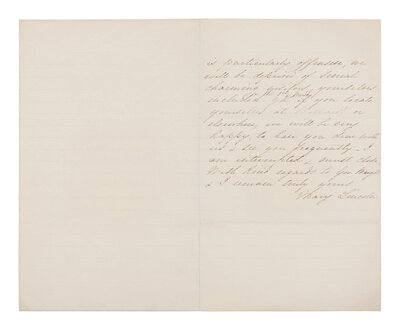 is particularly offensive, we
will be deprived of several
charming visitors, yourselves
included. if you locate
yourselves at or
elsewhere, we will be very
happy, to have you dine with
us & see you frequently - I
am interrupted & must close
With kind regards to you
& I remain truly yours
Mary Lincoln